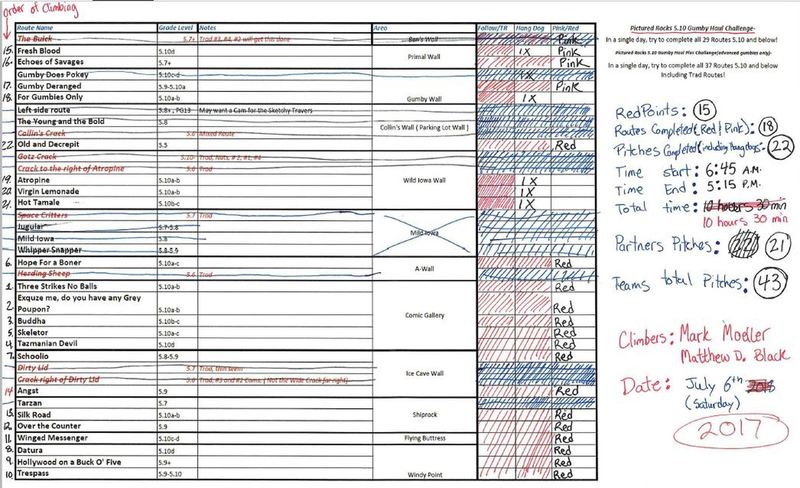 order of Climbing
Route Name Grade Level Notes Area Follow/TR Hang Dog Pink/Red
The Buick 5.7+ Trad #3, #4, #2 will get this done Ben's Wall Pink
15. Fresh Blood 5.10d Primal Wall 1X Pink
16. Echoes of Savages 5.7+ Pink
Gumby Does Pokey 5.10c-d Gumby Wall 1X
17. Gumby Deranged 5.9-5.10a Pink
18. For Gumbies Only 5.10a-b 1X
Left side route 5.8+, PG13 May want a Cam for the Sketchy Travers Collin's Wall ( Parking Lot Wall )
The Young and the Bold 5.8
Collin's Crack 5.6 Mixed Route
22 Old and Decrepit 5.5 Red
Gotz Crack 5.10- Trad, Nuts, # 2, #1, #4 Wild Iowa Wall
Crack to the right of Atropine 5.6 Trad
19. Atropine 5.10a-b 1X
20. Virgin Lemonade 5.10a-b 1X
21. Hot Tamale 5.10b-c 1X
Space Critters 5.7 Trad Mild Iowa
Jugular 5.7-5.8
Mild Iowa 5.8
Whipper Snapper 5.8-5.9
6. Hope For a Boner 5.10a-c A-Wall Red
Herding Sheep 5.6 Trad
1. Three Strikes No Balls 5.10a-b Comic Gallery Red
2. Exquze me, do you have any Grey
Poupon? 5.10a-b Red
3. Buddha 5.10b-c Red
5. Skeletor 5.10a-c Red
4. Tazmanian Devil 5.10d Red
7. Schoolio 5.8-5.9 Ice Cave Wall Red
Dirty Lid 5.7 Trad, thin seam
Crack right of Dirty Lid 5.6 Trad, #3 and #2 Cams, ( Not the Wide Crack far right)
14 Angst 5.9 Red
Tarzan 5.7 Shiprock
13. Silk Road 5.10a-b Red
12. Over the Counter 5.9 Red
11. Winged Messenger 5.10c-d Flying Buttress Red
8. Datura 5.10d Windy Point Red
9. Hollywood on a Buck O' Five 5.9+ Red
10 Trespass 5.9-5.10 Red
Pictured Rocks 5.10 Gumby Haul Challenge-
In a single day, try to complete all 29 Routes 5.10 and below!
Pictured Rocks 5.10 Gumby Haul Plus Challenge(advanced gumbies only)-
In a single day, try to complete all 37 Routes 5.10 and below
Including Trad Routes!
Red Points: 15
Routes Completed (Red/Pink): 18
Pitches Completed (including Hang dogs): 22
Time start: 6:45 A.M.
Time End: 5:15 P.M.
Total time: 10 hours 30 min
10 hours 30 min
Partners Pitches: 21
Teams total Pitches: 43
Climbers: Mark Moeller
Matthew D. Black
Date: July 6th
(Saturday)
2017